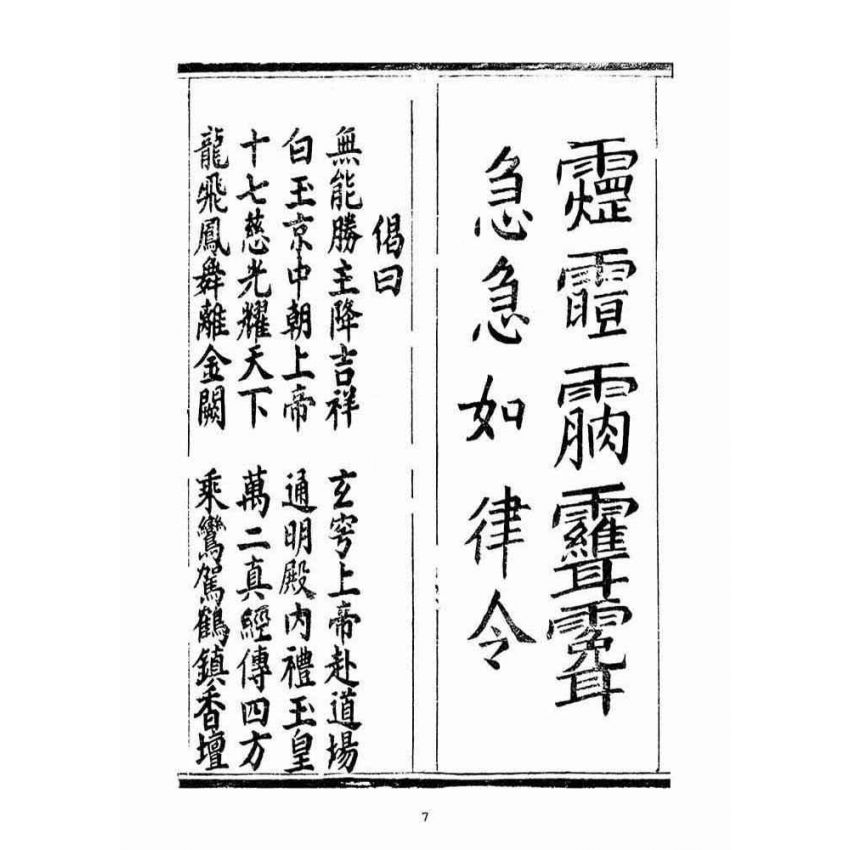 急急如律令
偈曰
無能勝主降吉祥　玄穹上帝赴道場
白玉京中朝上帝　通明殿内禮玉皇
十七慈光耀天下　萬二真經傳四方
龍飛鳳舞離金闕　乘鸞駕鶴鎮香壇
7